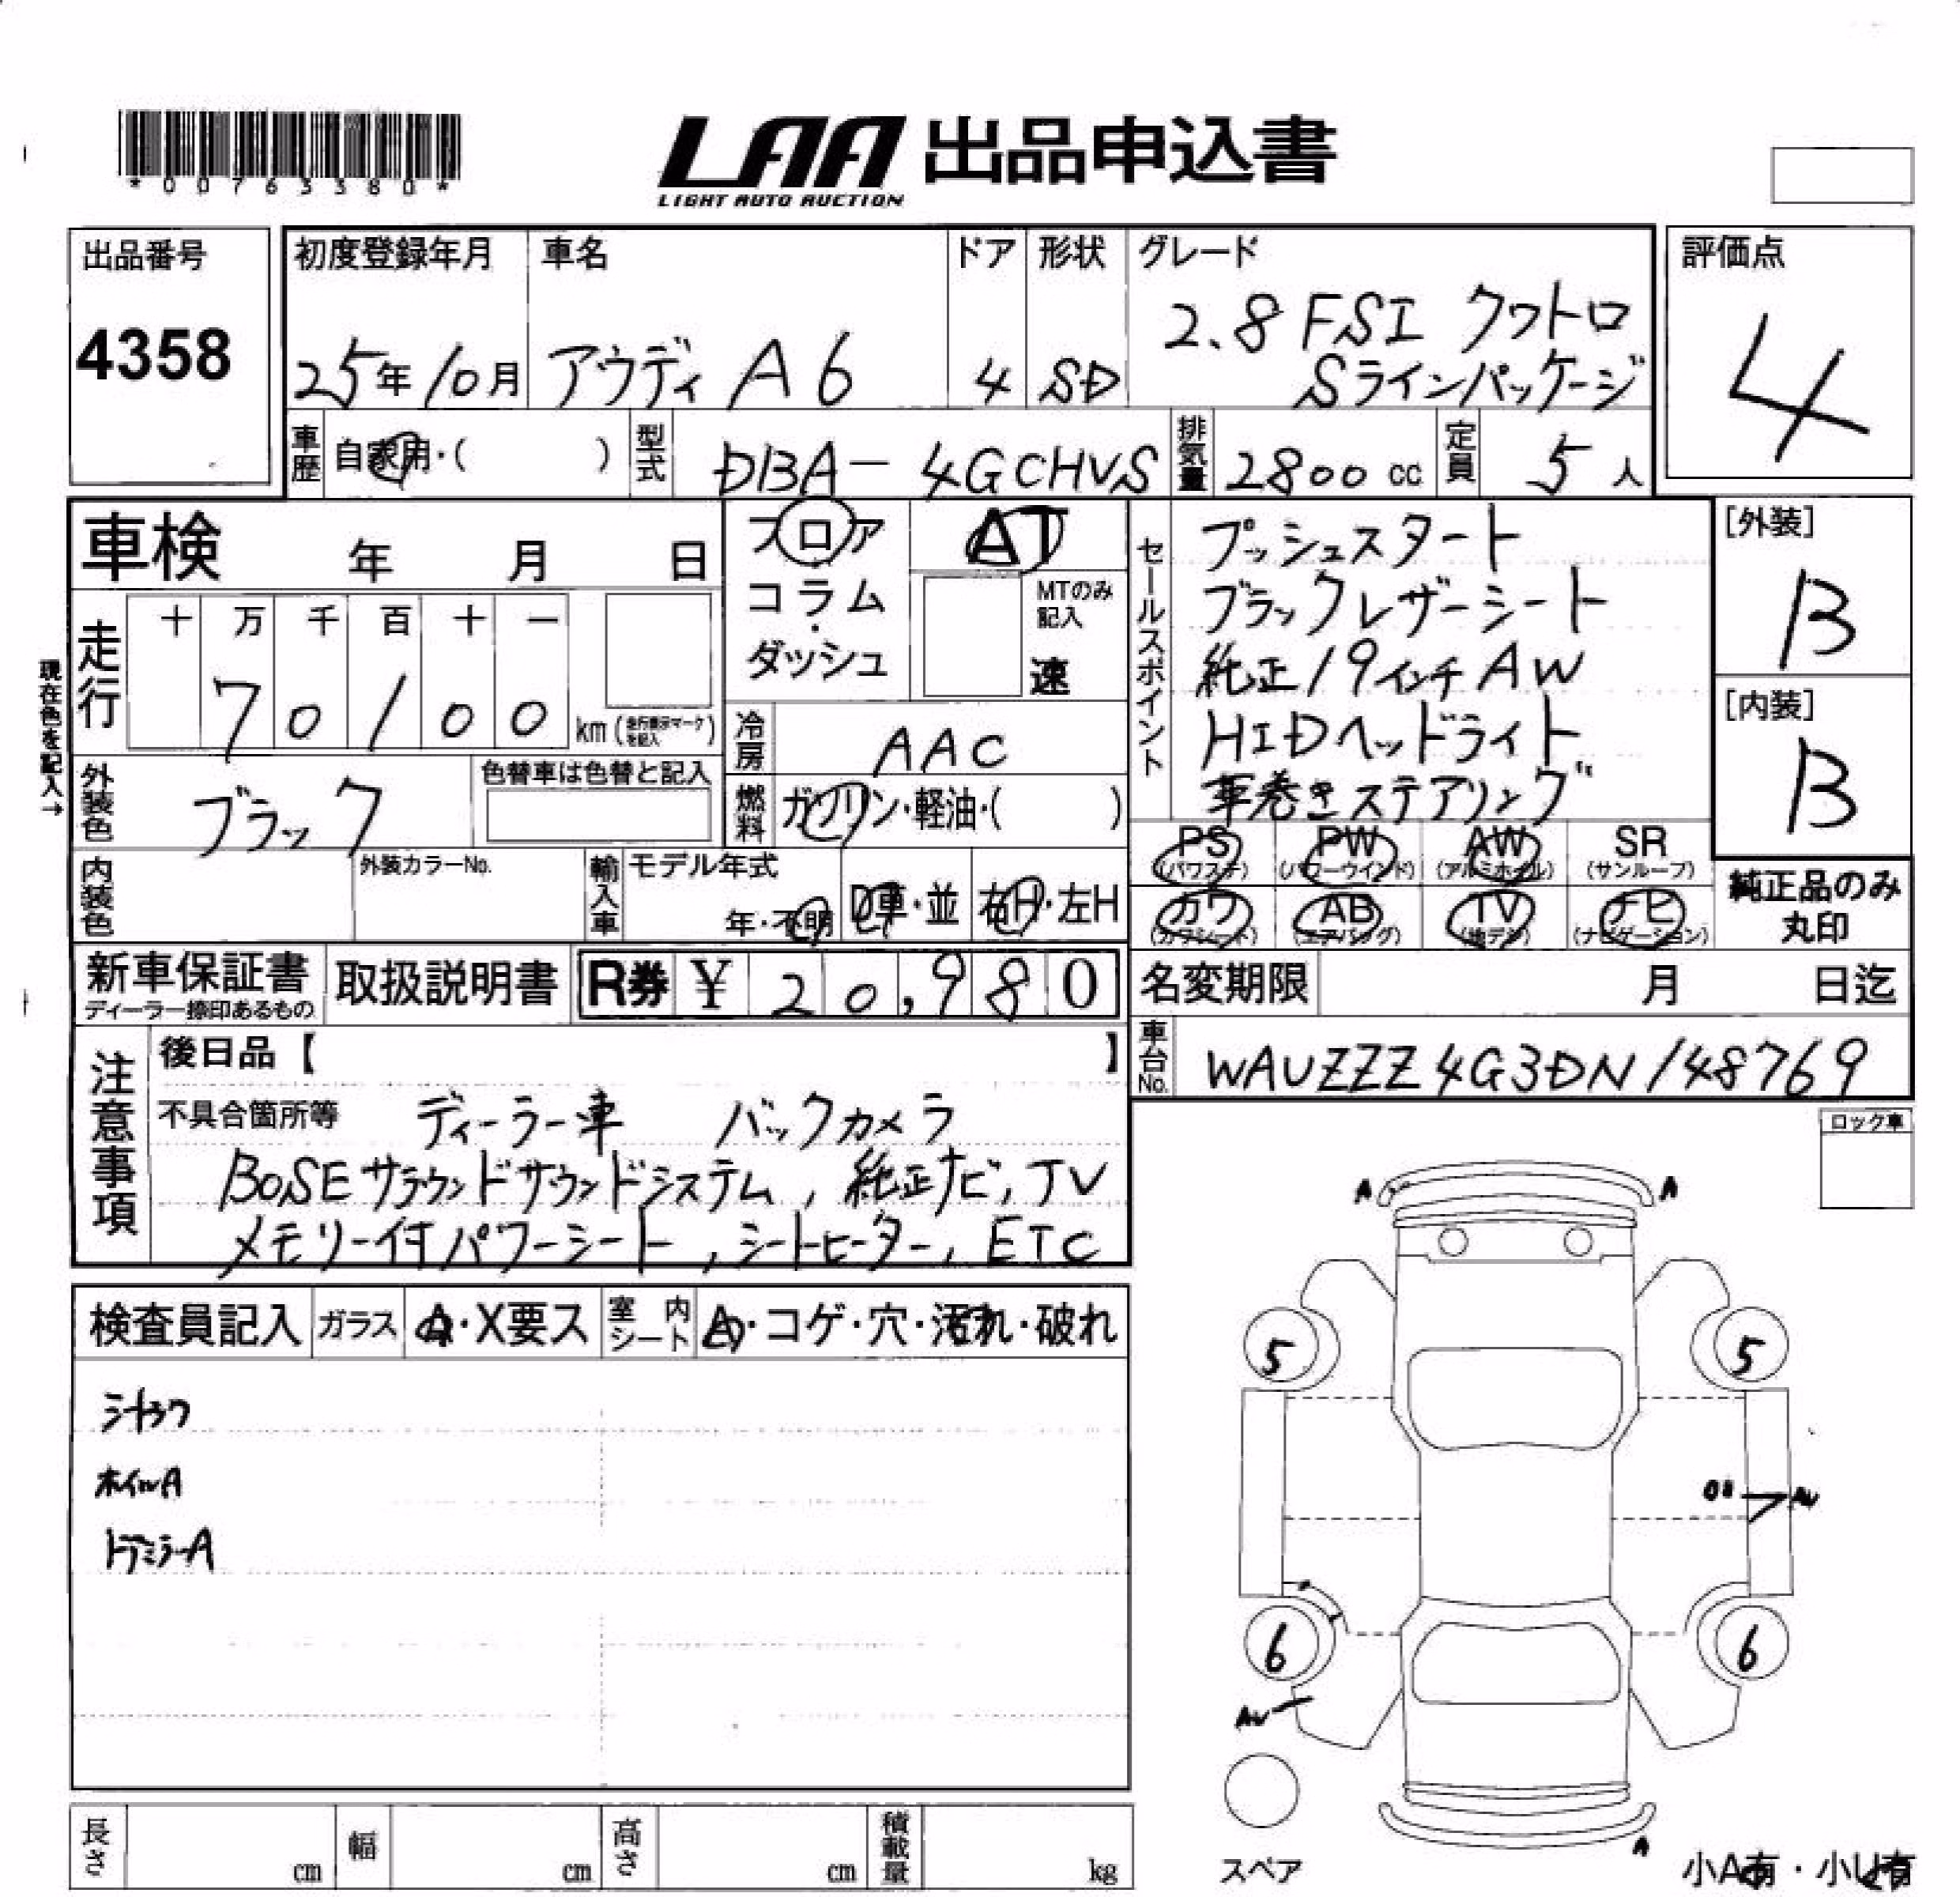 *00763380*
LAA 出品申込書
LIGHT AUTO AUCTION
出品番号
4358
初度登録年月
25年10月
車名
アウディ A6
ドア
4
形状
SD
グレード
2.8 FSI クワトロ
Sラインパッケージ
評価点
4
車歴
自家用・( )
型式
DBA-4GCHVS
排気量
2800 cc
定員
5 人
車検 年 月 日
フロア
コラム
・
ダッシュ
AT
MTのみ
記入
速
セールスポイント
プッシュスタート
ブラックレザーシート
純正19インチAW
HIDヘッドライト
革巻きステアリング
[外装]
B
[内装]
B
現在色を記入→
走行
十 万 千 百 十 一
7 0 1 0 0
km (走行表示マークを記入)
冷房
AAC
外装色
ブラック
色替車は色替と記入
燃料
ガソリン・軽油・( )
PS (パワステ)
PW (パワーウインド)
AW (アルミホイル)
SR (サンルーフ)
カワ (カワシート)
AB (エアバッグ)
TV (地デジ)
ナビ (ナビゲーション)
純正品のみ
丸印
内装色
外装カラーNo.
輸入車
モデル年式
年・不明
D車・並
右H・左H
新車保証書
ディーラー捺印あるもの
取扱説明書
R券 ¥ 20,980
名変期限 月 日迄
車台No.
WAUZZZ4G3DN148769
注意事項
後日品【 】
不具合箇所等 ディーラー車 バックカメラ
BOSEサラウンドサウンドシステム, 純正ナビ, TV
メモリー付パワーシート, シートヒーター, ETC
ロック車
検査員記入
ガラス
A・X要ス
室内シート
A・コゲ・穴・汚れ・破れ
ホイルA
ドアミラーA
A A
5 5
AU
6 6
AU
A
スペア
小A有・小U有
長さ cm
幅 cm
高さ cm
積載量 kg